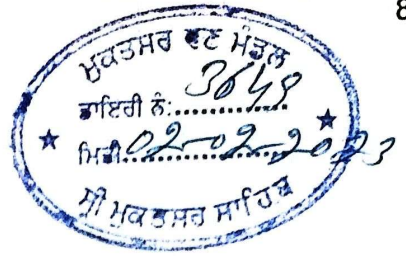 8
ਮੁਕਤਸਰ ਵਣ ਮੰਡਲ
ਡਾਇਰੀ ਨੰ:..............3649
ਮਿਤੀ..............02-02-2023
ਸ੍ਰੀ ਮੁਕਤਸਰ ਸਾਹਿਬ